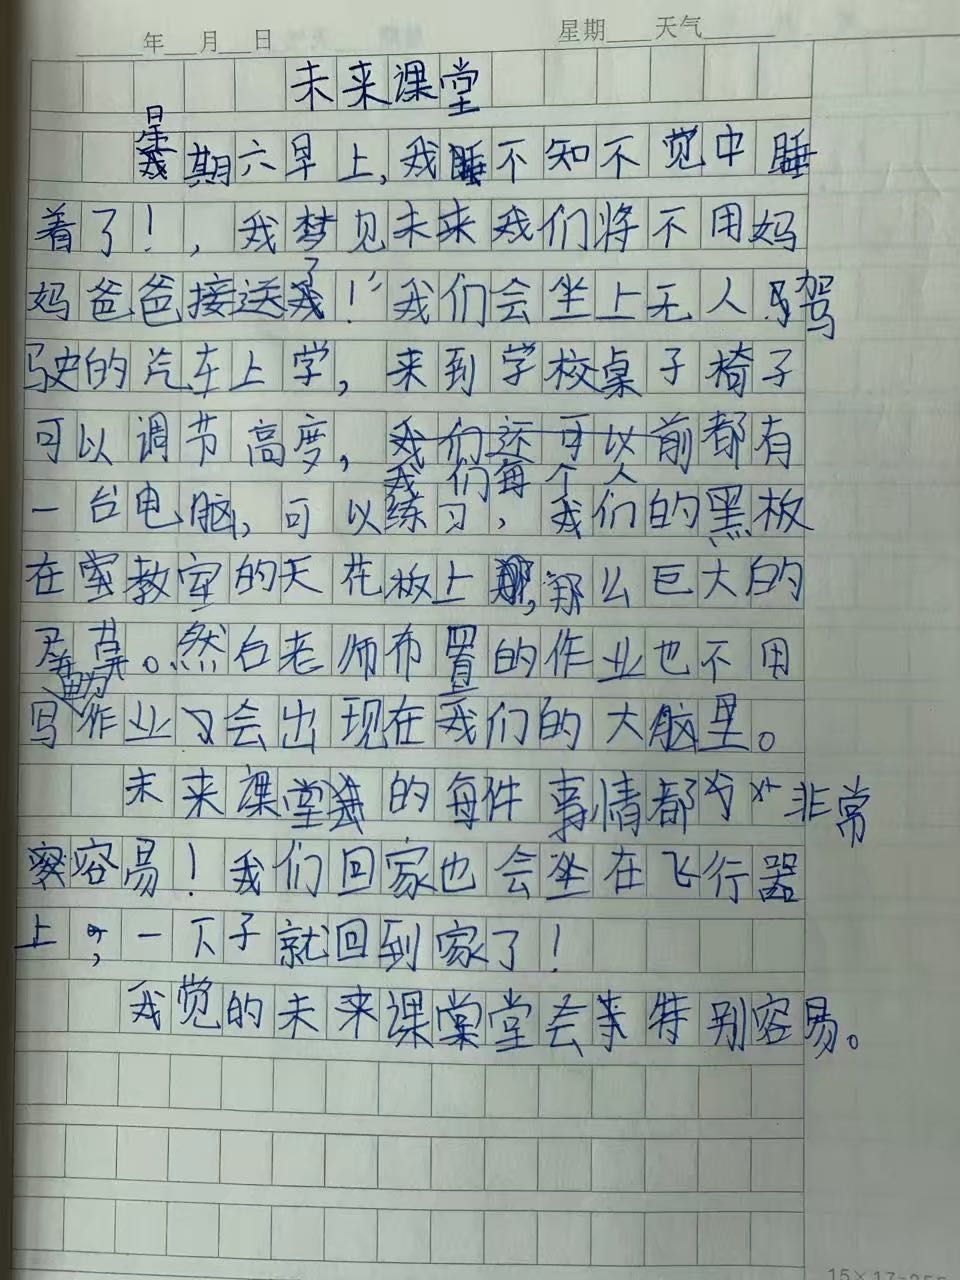 年 月 日 星期 天气
未来课堂
星期六早上,我不知不觉中睡
着了!,我梦见未来我们将不用妈
妈爸爸接送了!我们会坐上无人驾
驶的汽车上学,来到学校桌子椅子
可以调节高度,我们每个人前都有
一台电脑,可以练习,我们的黑板
在教室的天花板上,那么巨大的
屏幕。然后老师布置的作业也不用
写作业会出现在我们的大脑里。
未来课堂的每件事情都非常
容易!我们回家也会坐在飞行器
上,一下子就回到家了!
我觉的未来课堂会特别容易。